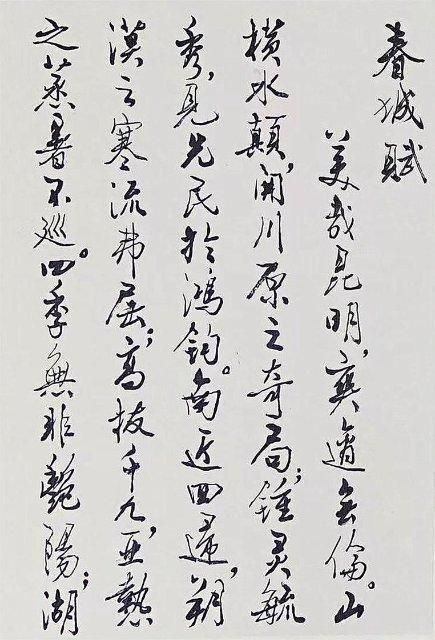 春城赋
美哉昆明，爽適無倫。山
横水颠，開川原之奇局；鍾灵毓
秀，見先民於鴻鈞。南近回歸，朔
漠之寒流弗届；高拔千九，亚熱
之蒸暑不巡。四季無非艷陽；湖